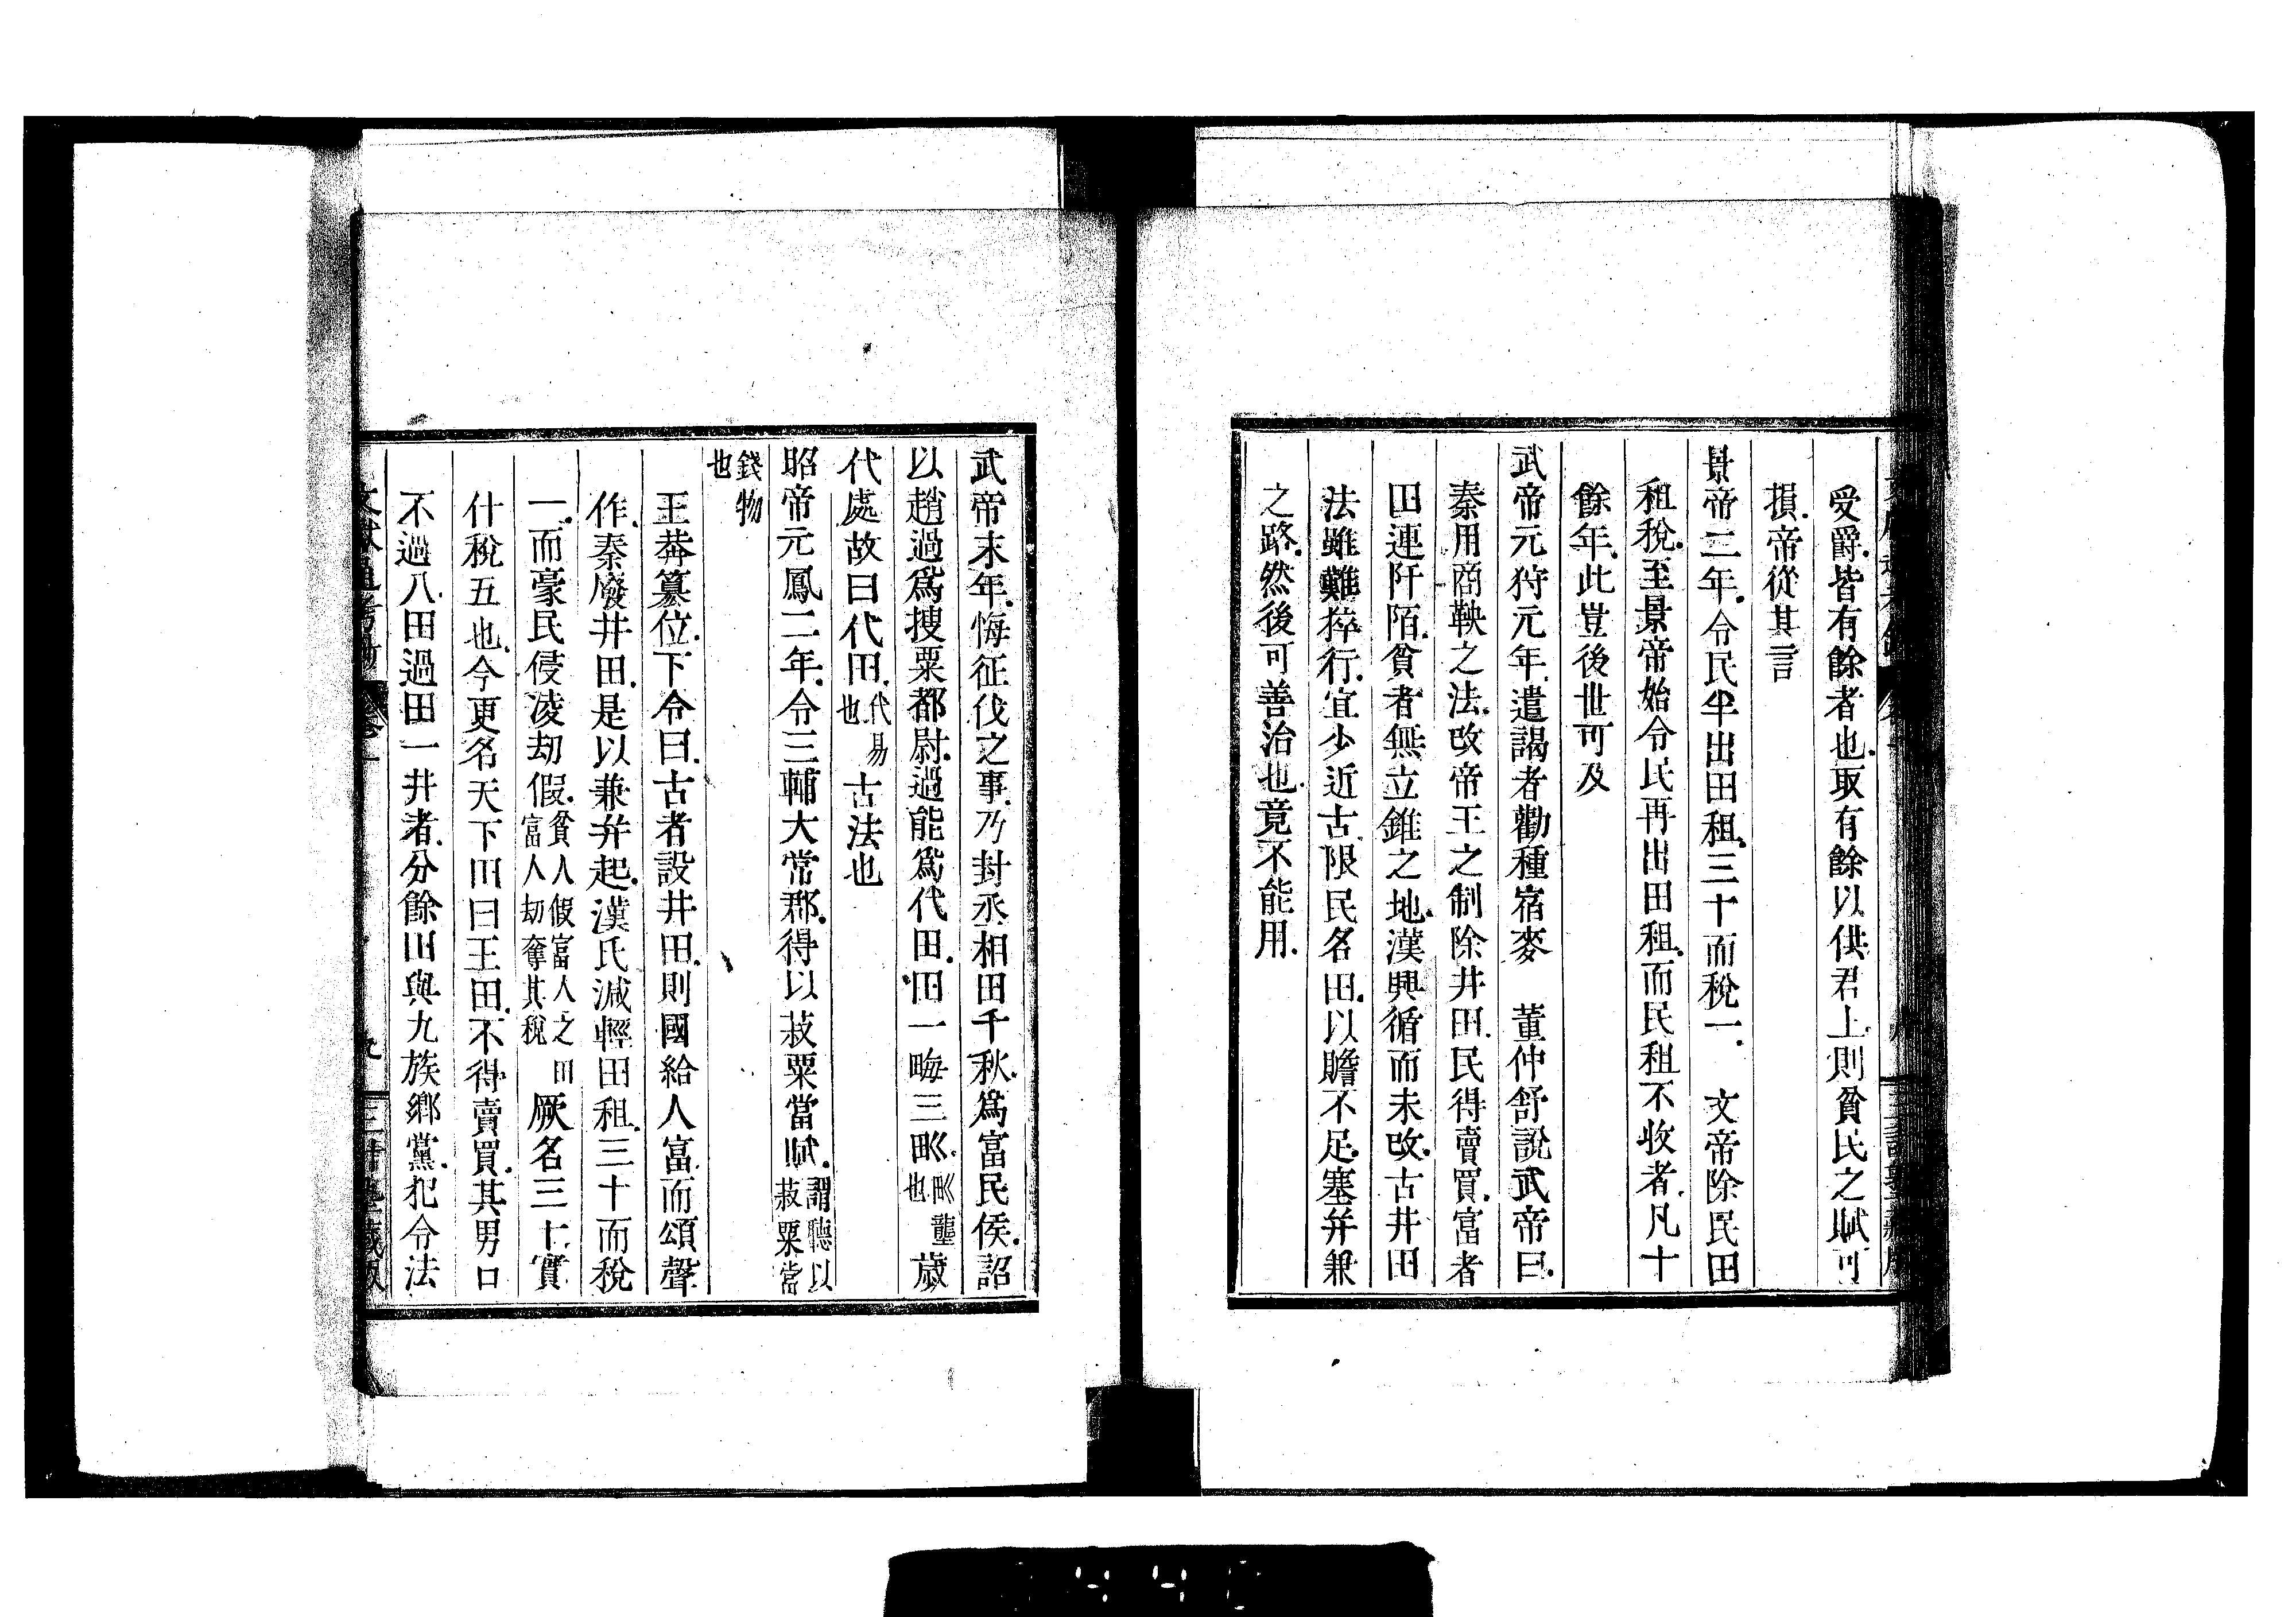 受爵皆有餘者也取有餘以供君上則貧民之賦可
損帝從其言
景帝二年令民半出田租三十而稅一　文帝除民田
租稅至景帝始令民再出田租而民租不收者凡十
餘年此豈後世可及
武帝元狩元年遣謁者勸種宿麥　董仲舒說武帝曰
秦用商鞅之法改帝王之制除井田民得賣買富者
田連阡陌貧者無立錐之地漢興循而未改古井田
法雖難猝行宜少近古限民名田以贍不足塞并兼
之路然後可善治也竟不能用
武帝末年悔征伐之事乃封丞相田千秋爲富民侯詔
以趙過爲搜粟都尉過能爲代田田一畮三甽甽壟也歲
代處故曰代田代易也古法也
昭帝元鳳二年令三輔大常郡得以菽粟當賦謂聽以菽粟當
錢物也
王莽篡位下令曰古者設井田則國給人富而頌聲
作秦廢井田是以兼并起漢氏減輕田租三十而稅
一而豪民侵凌劫假貧人假富人之田富人劫奪其稅厥名三十實
什稅五也今更名天下田曰王田不得賣買其男口
不過八田過田一井者分餘田與九族鄉黨犯令法